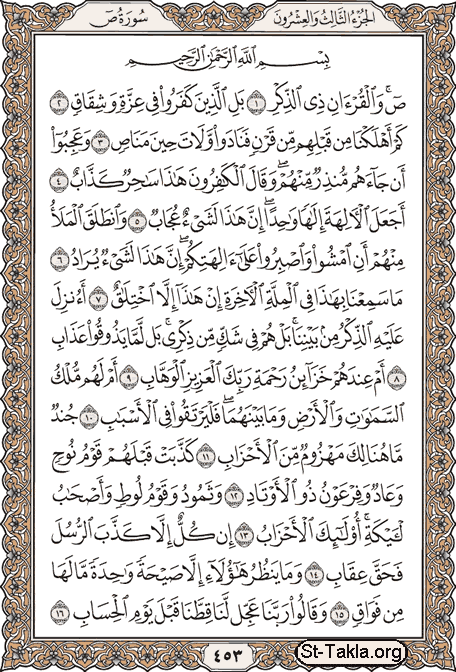 الجزء الثالث والعشرون
سورة ص
بِسْمِ ٱللَّهِ ٱلرَّحْمَٰنِ ٱلرَّحِيمِ
صٓ ۚ وَٱلْقُرْءَانِ ذِى ٱلذِّكْرِ ١ بَلِ ٱلَّذِينَ كَفَرُوا۟ فِى عِزَّةٍ وَشِقَاقٍ ٢
كَمْ أَهْلَكْنَا مِن قَبْلِهِم مِّن قَرْنٍ فَنَادَوا۟ وَّلَاتَ حِينَ مَنَاصٍ ٣ وَعَجِبُوٓا۟
أَن جَآءَهُم مُّنذِرٌ مِّنْهُمْ ۖ وَقَالَ ٱلْكَٰفِرُونَ هَٰذَا سَٰحِرٌ كَذَّابٌ ٤
أَجَعَلَ ٱلْءَالِهَةَ إِلَٰهًا وَٰحِدًا ۖ إِنَّ هَٰذَا لَشَىْءٌ عُجَابٌ ٥ وَٱنطَلَقَ ٱلْمَلَأُ
مِنْهُمْ أَنِ ٱمْشُوا۟ وَٱصْبِرُوا۟ عَلَىٰٓ ءَالِهَتِكُمْ ۖ إِنَّ هَٰذَا لَشَىْءٌ يُرَادُ ٦
مَا سَمِعْنَا بِهَٰذَا فِى ٱلْمِلَّةِ ٱلْءَاخِرَةِ إِنْ هَٰذَآ إِلَّا ٱخْتِلَٰقٌ ٧ أَءُنزِلَ
عَلَيْهِ ٱلذِّكْرُ مِنۢ بَيْنِنَا ۚ بَلْ هُمْ فِى شَكٍّ مِّن ذِكْرِى ۖ بَل لَّمَّا يَذُوقُوا۟ عَذَابِ
٨ أَمْ عِندَهُمْ خَزَآئِنُ رَحْمَةِ رَبِّكَ ٱلْعَزِيزِ ٱلْوَهَّابِ ٩ أَمْ لَهُم مُّلْكُ
ٱلسَّمَٰوَٰتِ وَٱلْأَرْضِ وَمَا بَيْنَهُمَا ۖ فَلْيَرْتَقُوا۟ فِى ٱلْأَسْبَٰبِ ١٠ جُندٌ
مَّا هُنَالِكَ مَهْزُومٌ مِّنَ ٱلْأَحْزَابِ ١١ كَذَّبَتْ قَبْلَهُمْ قَوْمُ نُوحٍ
وَعَادٌ وَفِرْعَوْنُ ذُو ٱلْأَوْتَادِ ١٢ وَثَمُودُ وَقَوْمُ لُوطٍ وَأَصْحَٰبُ
لْـَٔيْكَةِ ۚ أُو۟لَٰٓئِكَ ٱلْأَحْزَابُ ١٣ إِن كُلٌّ إِلَّا كَذَّبَ ٱلرُّسُلَ
فَحَقَّ عِقَابِ ١٤ وَمَا يَنظُرُ هَٰٓؤُلَآءِ إِلَّا صَيْحَةً وَٰحِدَةً مَّا لَهَا
مِن فَوَاقٍ ١٥ وَقَالُوا۟ رَبَّنَا عَجِّل لَّنَا قِطَّنَا قَبْلَ يَوْمِ ٱلْحِسَابِ ١٦
٤٥٣
St-Takla.org